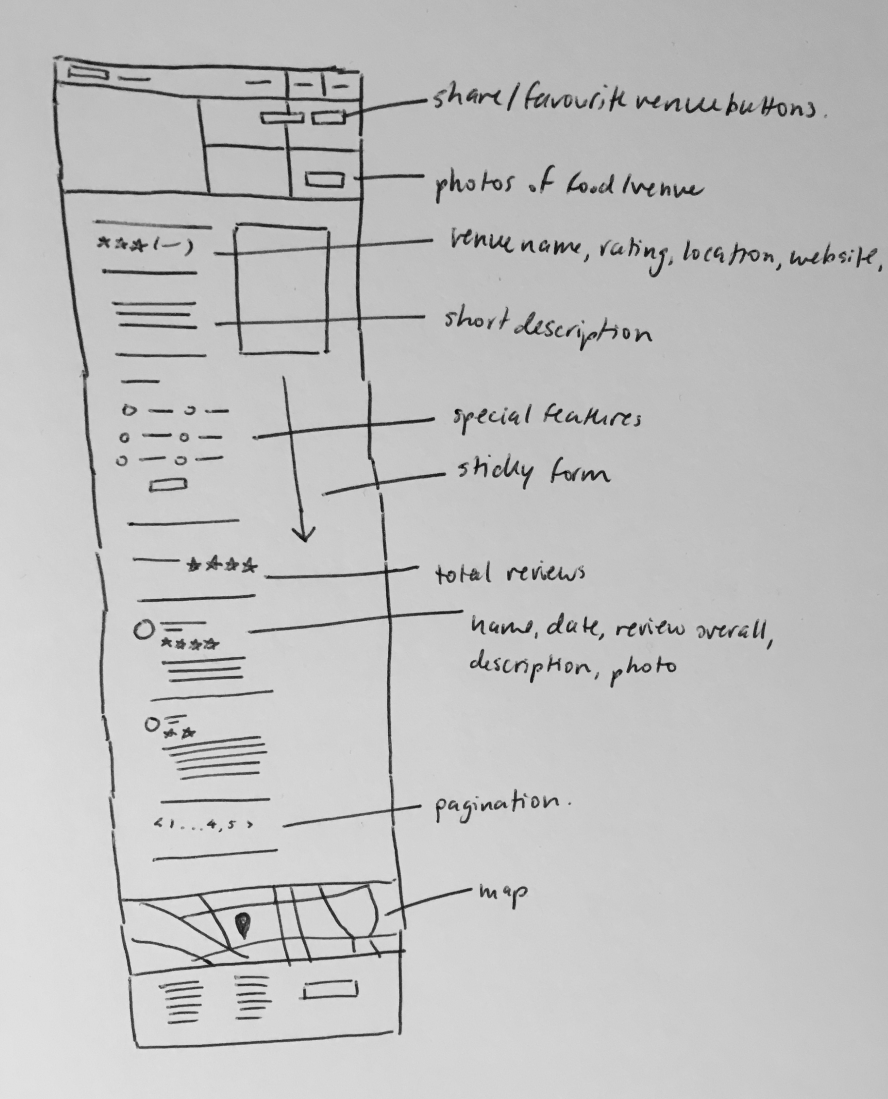 share/favourite venue buttons.
photos of food/venue
(—)
venue name, rating, location, website,
short description
special features
sticky form
total reviews
name, date, review overall,
description, photo
< 1 ... 4, 5 >
pagination.
map